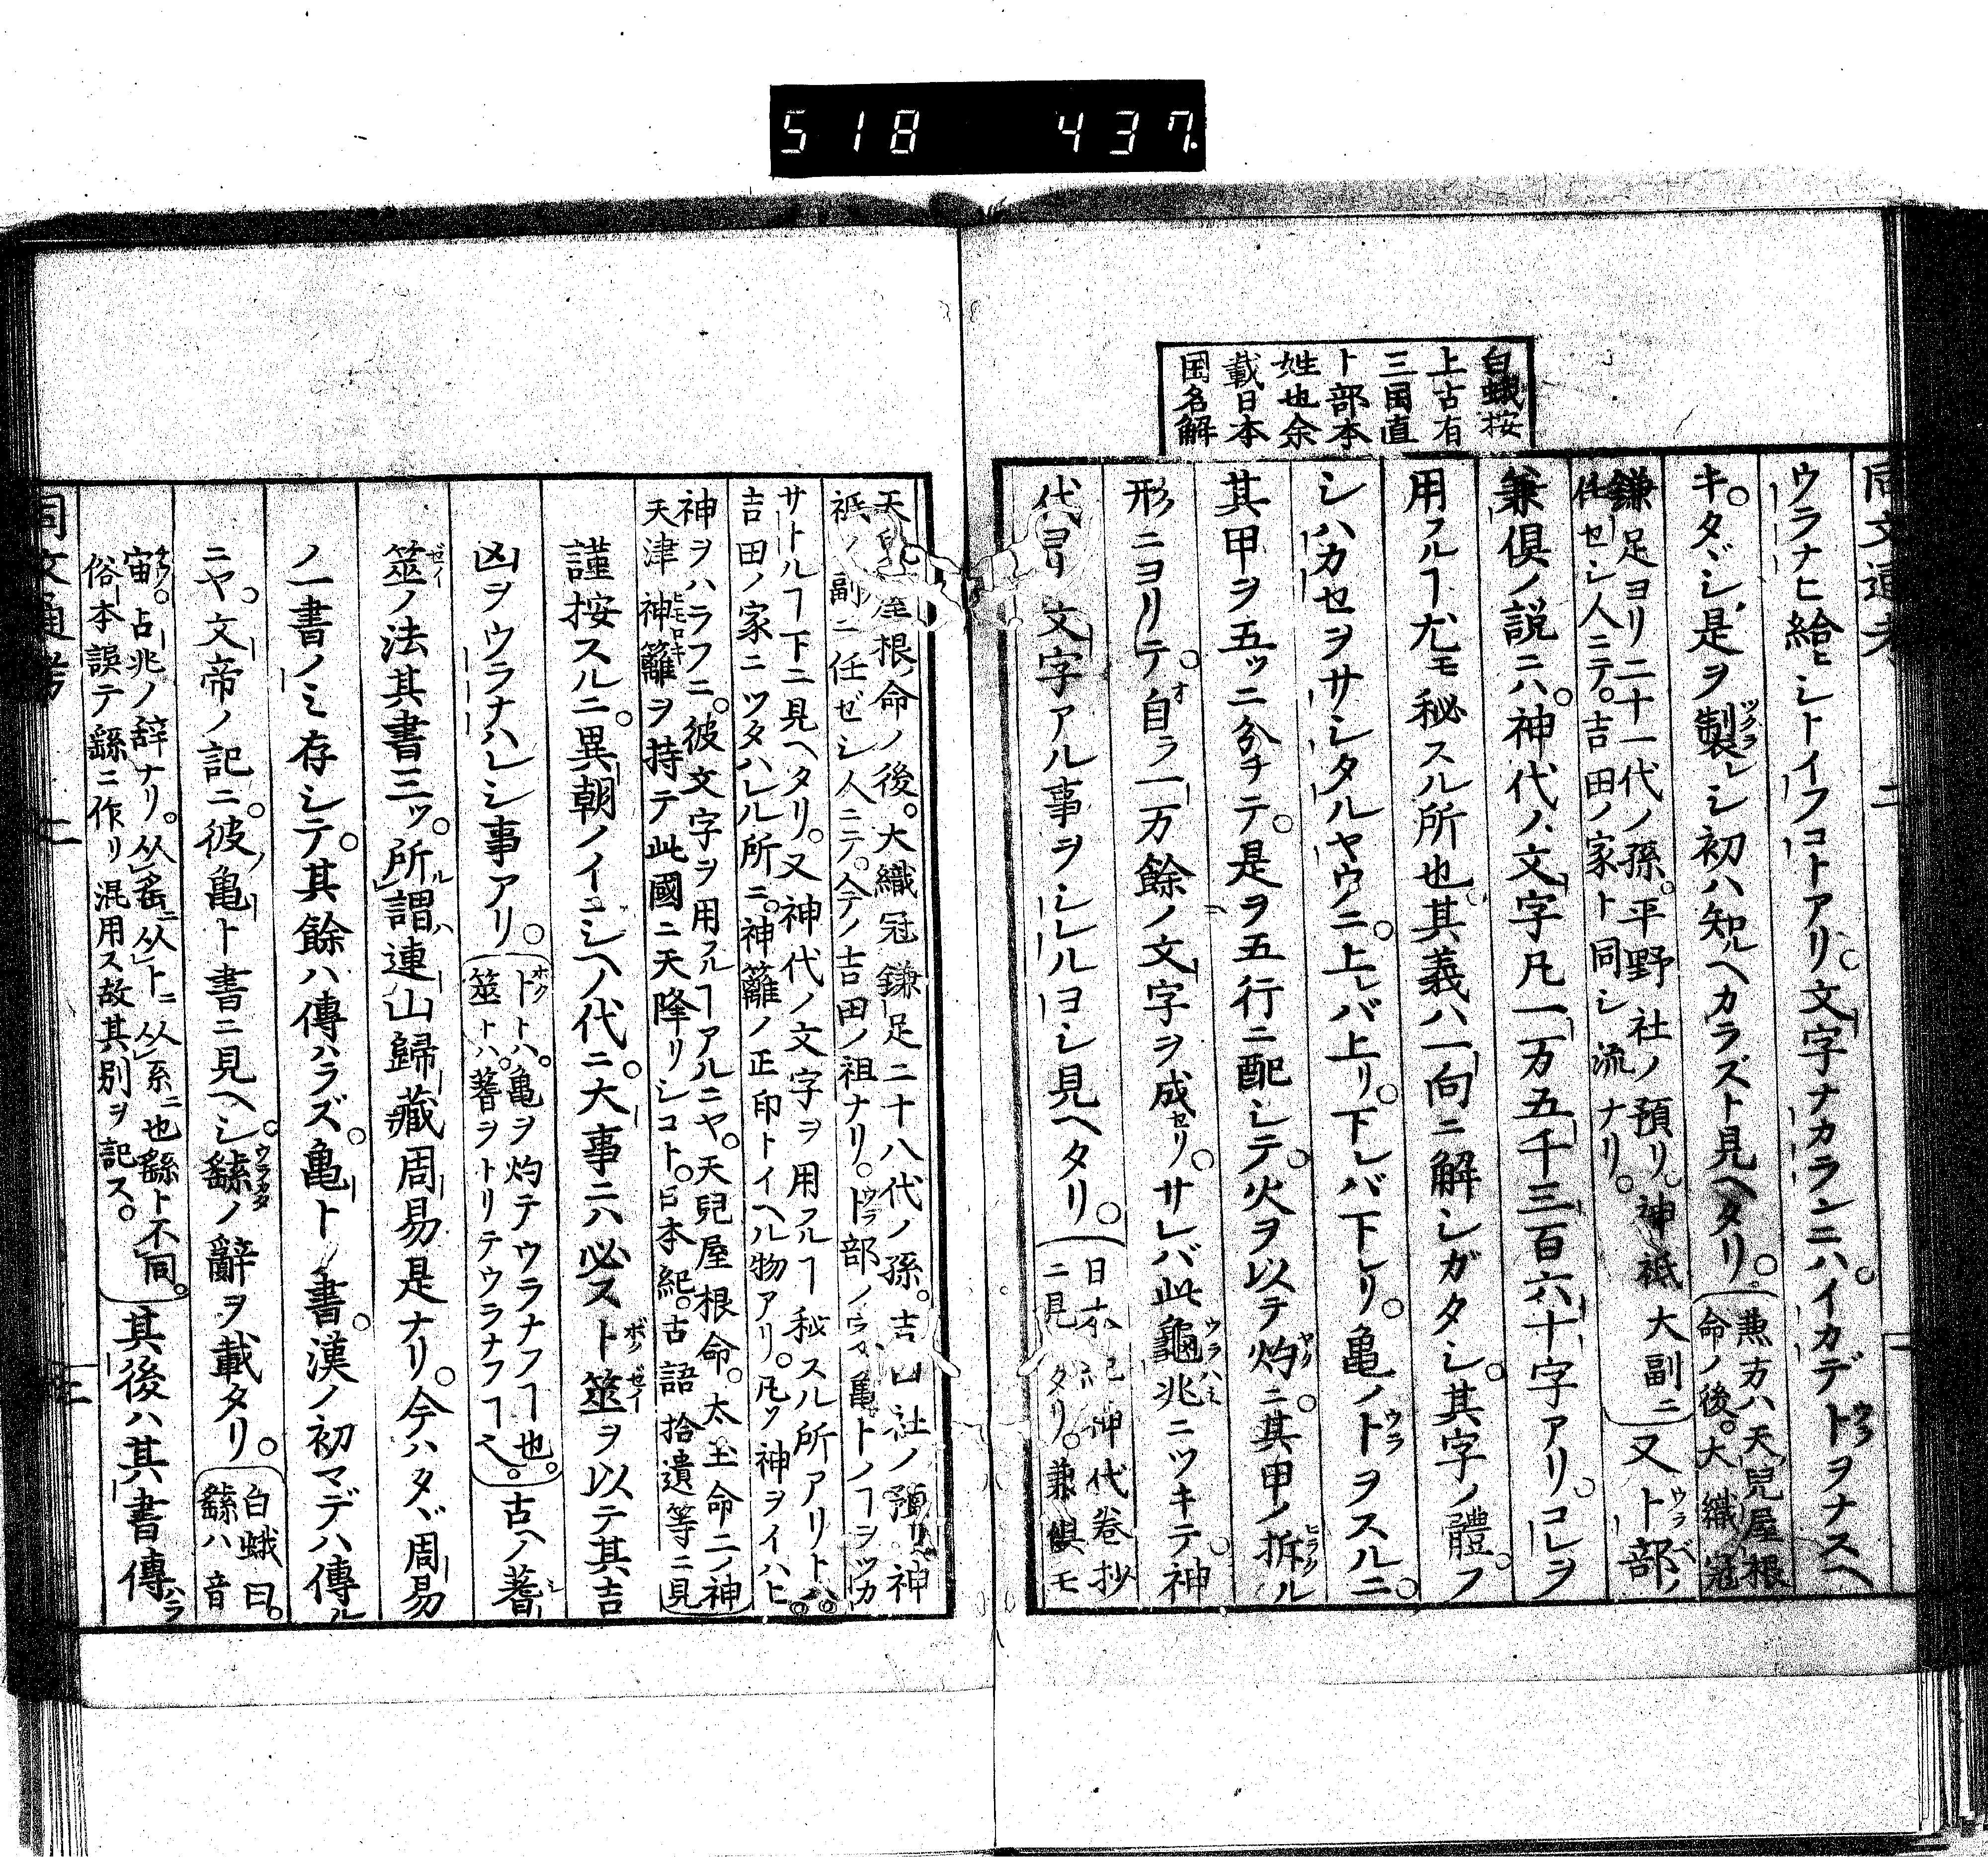 518 437
白蛾按
上古有
三国直
卜部本
姓也余
載日本
国名解
同文通考 二
ウラナヒ給ヒシトイフコトアリ。文字ナカランニハ。イカデ卜ヲナスヘ
キ。タヾシ是ヲ製レシ初ハ知ルヘカラズト見ヘタリ。
兼方ハ天兒屋根
命ノ後。大織冠
鎌足ヨリ二十一代ノ孫。平野社ノ預リ。神祇大副ニ
任セシ人ニテ。吉田ノ家ト同シ流ナリ。
又卜部ノ
兼俱ノ説ニハ。神代ノ文字凡一万五千三百六十字アリ。コレヲ
用フルヿ尤モ秘スル所也。其義ハ一向ニ解シガタシ。其字ノ體。フ
シハカセヲサシタルヤウニ。上レバ上リ。下レバ下レリ。亀ノ卜ヲスルニ。
其甲ヲ五ッニ分チテ。是ヲ五行ニ配シテ。火ヲ以テ灼ニ。其甲ノ拆ル
形ニヨリテ。自ラ一万餘ノ文字ヲ成セリ。サレバ此龜兆ニツキテ。神
代ヨリ文字アル事ヲシレルヨシ見ヘタリ。
日本紀神代巻抄
ニ見ヘタリ。兼俱モ
天兒屋根命ノ後。大織冠鎌足二十八代ノ孫。吉田社ノ預リ。神
祇ノ副ニ任ゼシ人ニテ。今ノ吉田ノ祖ナリ。卜部ノ亀トノヿヲツカ
サトルヿ下ニ見ヘタリ。又神代ノ文字ヲ用フルヿ秘スル所アリト。
吉田ノ家ニツタハレル所ニ。神籬ノ正印トイヘル物アリ。凡ソ神ヲイハヒ
神ヲハラフニ。彼文字ヲ用フルヿアルニヤ。天兒屋根命。太玉命二ノ神
天津神籬ヲ持テ此國ニ天降リシコト。日本紀。古語拾遺等ニ見
謹按スルニ。異朝ノイニシヘノ代ニ。大事ニハ必ス卜筮ヲ以テ其吉
凶ヲウラナハレシ事アリ。
卜トハ。亀ヲ灼テウラナフヿ也。
筮トハ。蓍ヲトリテウラナフヿ也。
古ヘノ蓍
筮ノ法其書三ツ。所謂連山歸藏周易是ナリ。今ハタヾ周易
ノ一書ノミ存シテ。其餘ハ傳ハラズ。亀卜ノ書。漢ノ初マデハ傳ル
ニヤ。文帝ノ記ニ。彼亀卜書ニ見ヘシ。繇ノ辭ヲ載タリ。
白蛾曰。
繇ハ音
宙。占兆ノ辞ナリ。
俗本誤テ繇ニ作リ混用ス故其別ヲ記ス。
其後ハ其書傳ハラ
同文通考 二 三